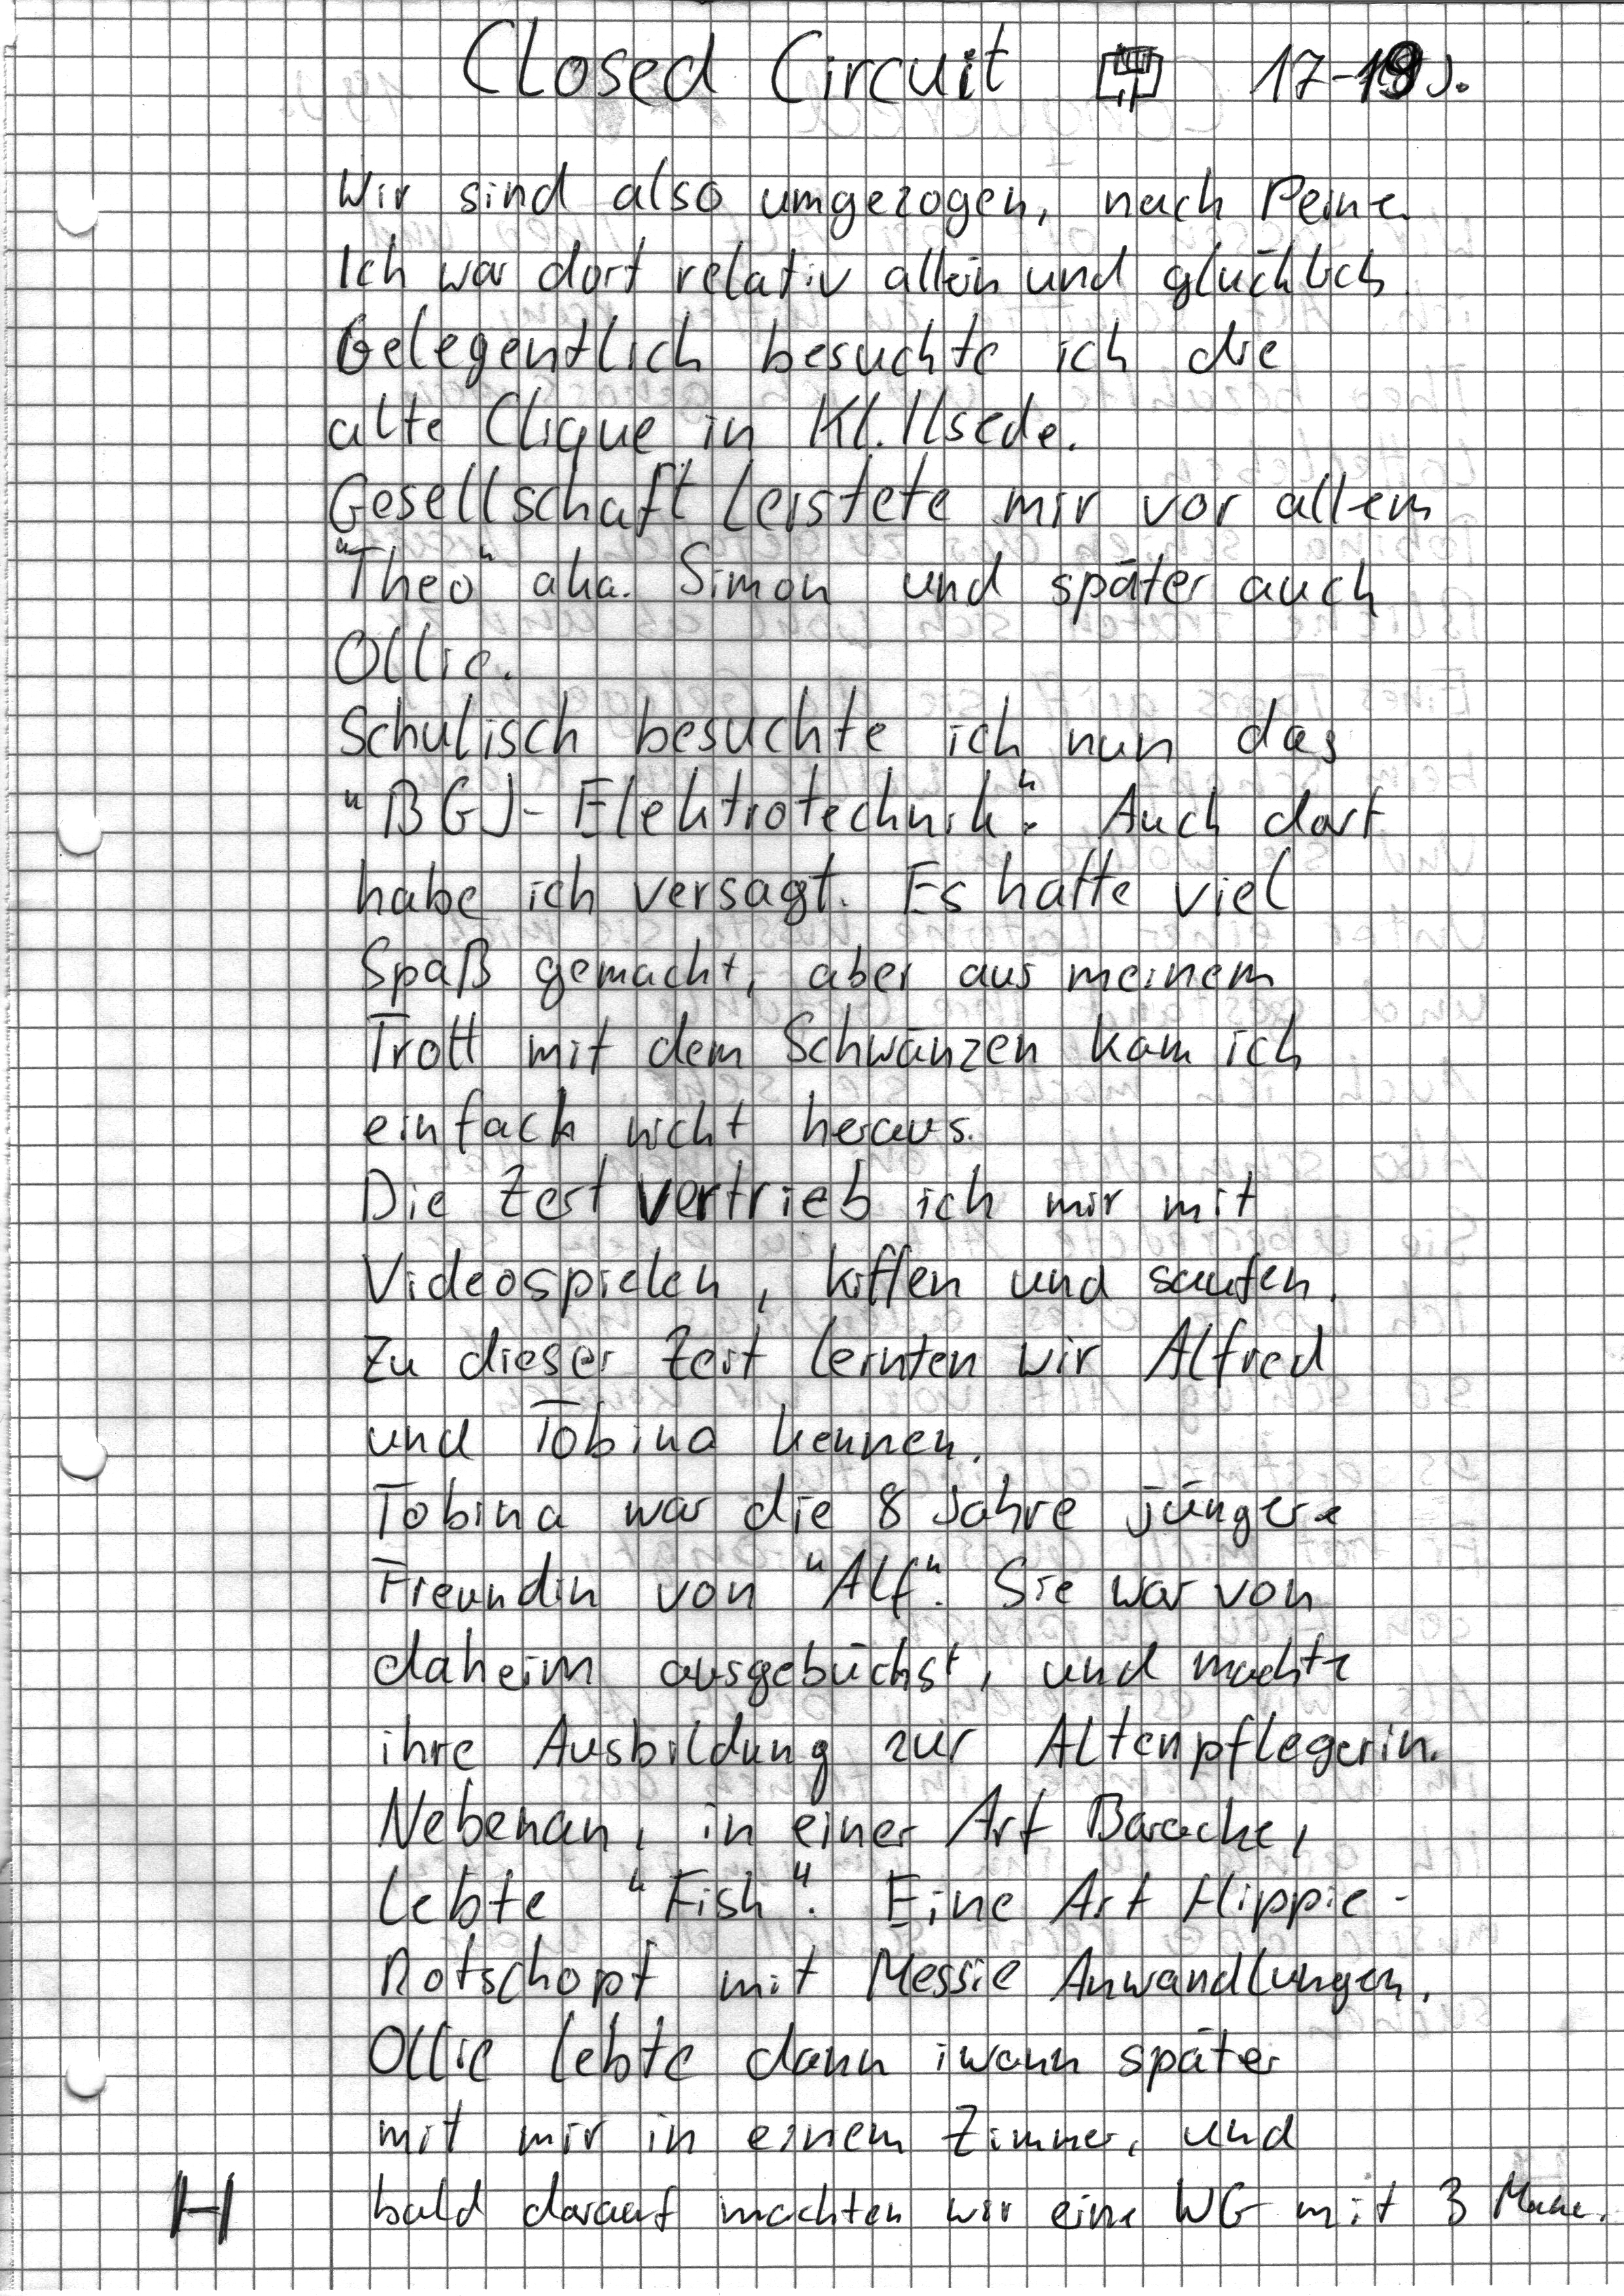 Closed Circuit 17-19 J.
Wir sind also umgezogen, nach Peine.
Ich war dort relativ allein und glücklich.
Gelegentlich besuchte ich die
alte Clique in Kl. Ilsede.
Gesellschaft leistete mir vor allem
"Theo" aka. Simon und später auch
Ollie.
Schulisch besuchte ich nun das
"BGJ-Elektrotechnik". Auch dort
habe ich versagt. Es hatte viel
Spaß gemacht, aber aus meinem
Trott mit dem Schwänzen kam ich
einfach nicht heraus.
Die Zeit vertrieb ich mir mit
Videospielen, kiffen und saufen.
Zu dieser Zeit lernten wir Alfred
und Tobina kennen.
Tobina war die 8 Jahre jüngere
Freundin von "Alf". Sie war von
daheim ausgebüchst, und machte
ihre Ausbildung zur Altenpflegerin.
Nebenan, in einer Art Baracke,
lebte "Fish". Eine Art Hippie-
Rotschopf mit Messie Anwandlungen.
Ollie lebte dann iwann später
mit mir in einem Zimmer, und
H bald darauf machten wir eine WG mit 3 Mann.